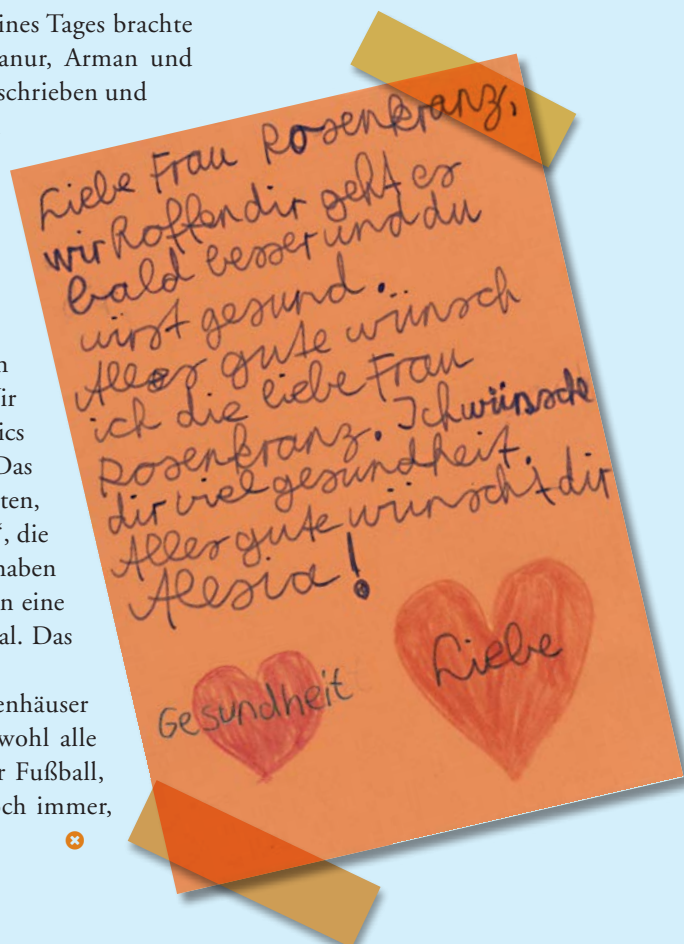 ines Tages brachte
anur, Arman und
schrieben und
n
ir
ics
Das
ten,
“, die
haben
n eine
al. Das
enhäuser
wohl alle
r Fußball,
och immer,
Liebe Frau Rosenkranz,
wir hoffen dir geht es
bald besser und du
wirst gesund.
Alles gute wünsch
ich die liebe Frau
Rosenkranz. Ich wünsche
dir viel gesundheit.
Alles gute wünscht dir
Alesia!
Gesundheit
Liebe